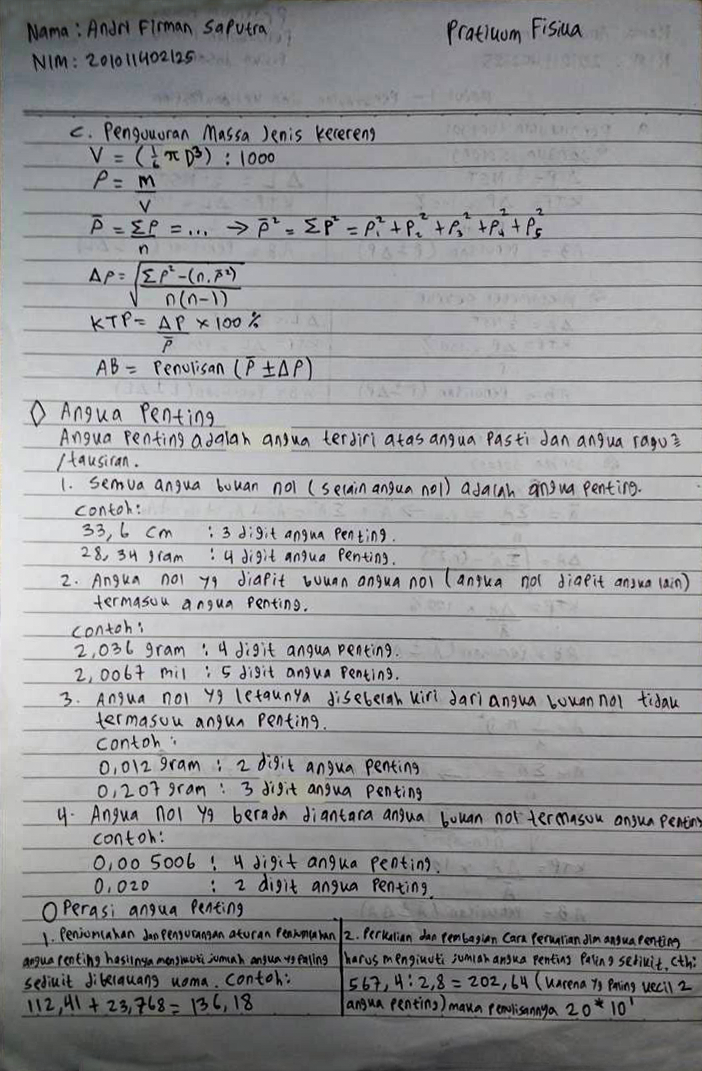 Nama : Andri Firman Saputra
Pratikum Fisika
NIM : 201011402125
c. Pengukuran Massa Jenis Kelereng
V = (1/6 π D³) : 1000
ρ = m/V
ρ̄ = Σρ/n = ... → ρ̄² = Σρ² = ρ₁² + ρ₂² + ρ₃² + ρ₄² + ρ₅²
Δρ = √((Σρ² - (n.ρ̄²))/(n(n-1)))
KTP = Δρ/ρ̄ × 100 %
AB = Penulisan (ρ̄ ± Δρ)
◊ Angka Penting
Angka Penting adalah angka terdiri atas angka Pasti dan angka ragu²
/taksiran.
1. Semua angka bukan nol (selain angka nol) adalah angka Penting.
Contoh:
33,6 cm : 3 digit angka Penting.
28,34 gram : 4 digit angka Penting.
2. Angka nol yg diapit bukan angka nol (angka nol diapit angka lain)
termasuk angka Penting.
Contoh:
2,036 gram : 4 digit angka Penting.
2,0067 mil : 5 digit angka Penting.
3. Angka nol yg letaknya disebelah kiri dari angka bukan nol tidak
termasuk angka Penting.
Contoh :
0,012 gram : 2 digit angka Penting
0,207 gram : 3 digit angka Penting
4. Angka nol yg berada diantara angka bukan nol termasuk angka Penting
Contoh:
0,00 5006 : 4 digit angka Penting.
0,020 : 2 digit angka Penting.
Operasi angka Penting
1. Penjumlahan dan Pengurangan aturan Penjumlahan
angka Penting hasilnya mengikuti jumlah angka yg Paling
sedikit dibelakang koma. Contoh:
112,41 + 23,768 = 136,18
2. Perkalian dan Pembagian Cara Perkalian dlm angka Penting
harus mengikuti jumlah angka Penting Paling sedikit, cth:
567,4 : 2,8 = 202,64 (karena yg Paling kecil 2
angka Penting) maka Penulisannya 20 * 10¹